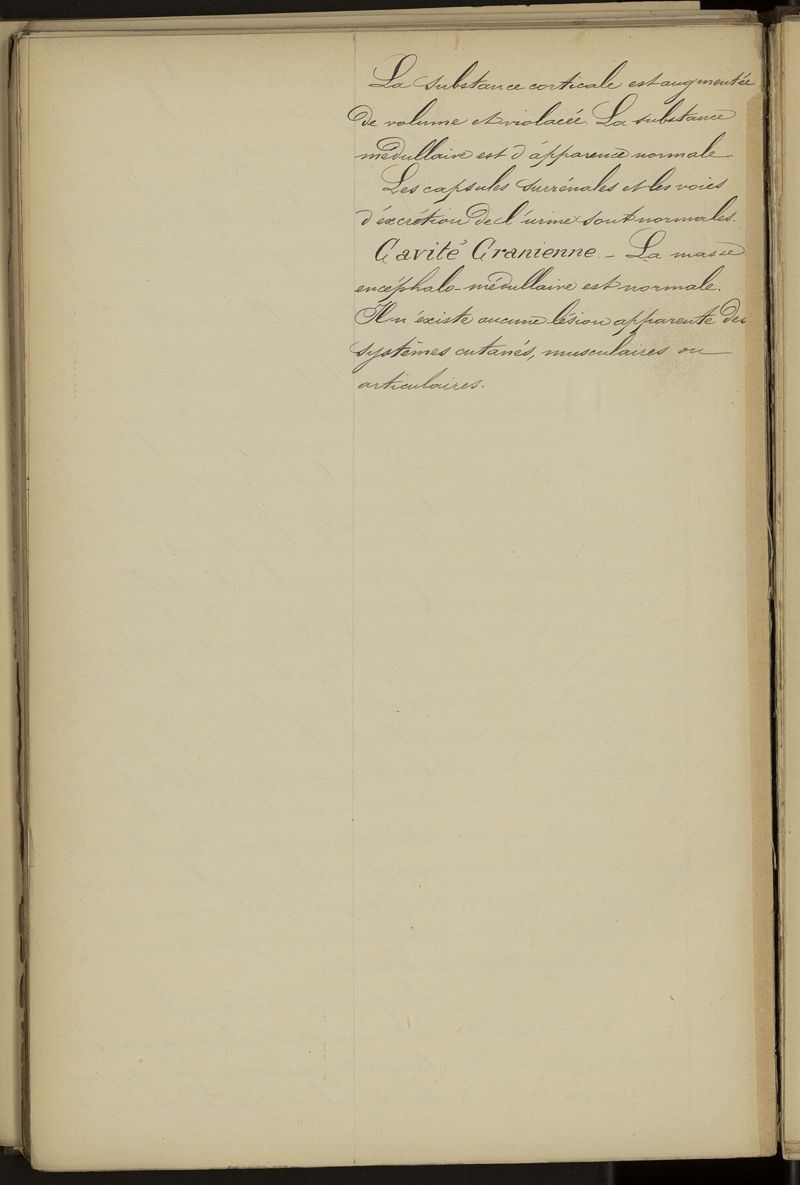 La substance corticale est augmentée
de volume et violacée. La substance
médullaire est d'apparence normale.
Les capsules surrénales et les voies
d'excrétion de l'urine sont normales.
Cavité Cranienne. - La masse
encéphalo-médullaire est normale.
Il n'existe aucune lésion apparente des
systèmes cutanés, musculaires ou
articulaires.